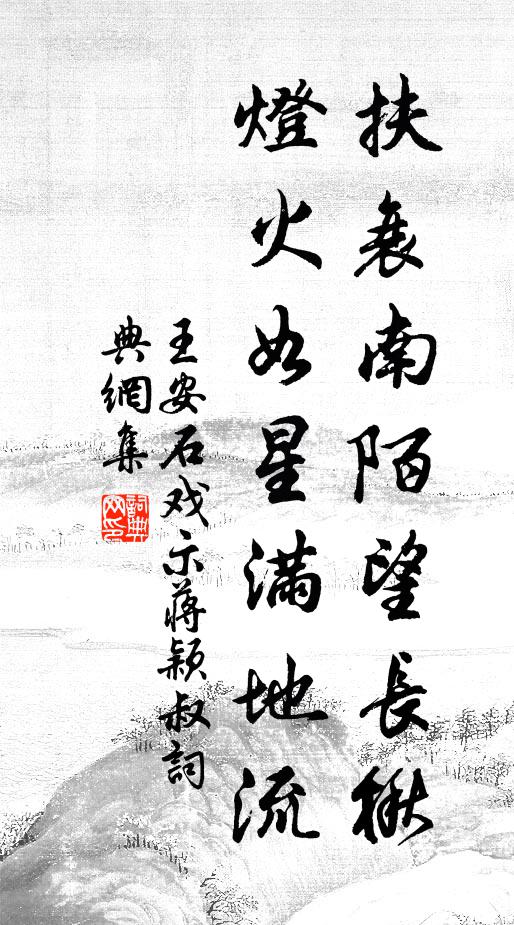 扶衰南陌望長楸
燈火如星滿地流
王安石戏示蔣穎叔詞
典網集
詞典網印